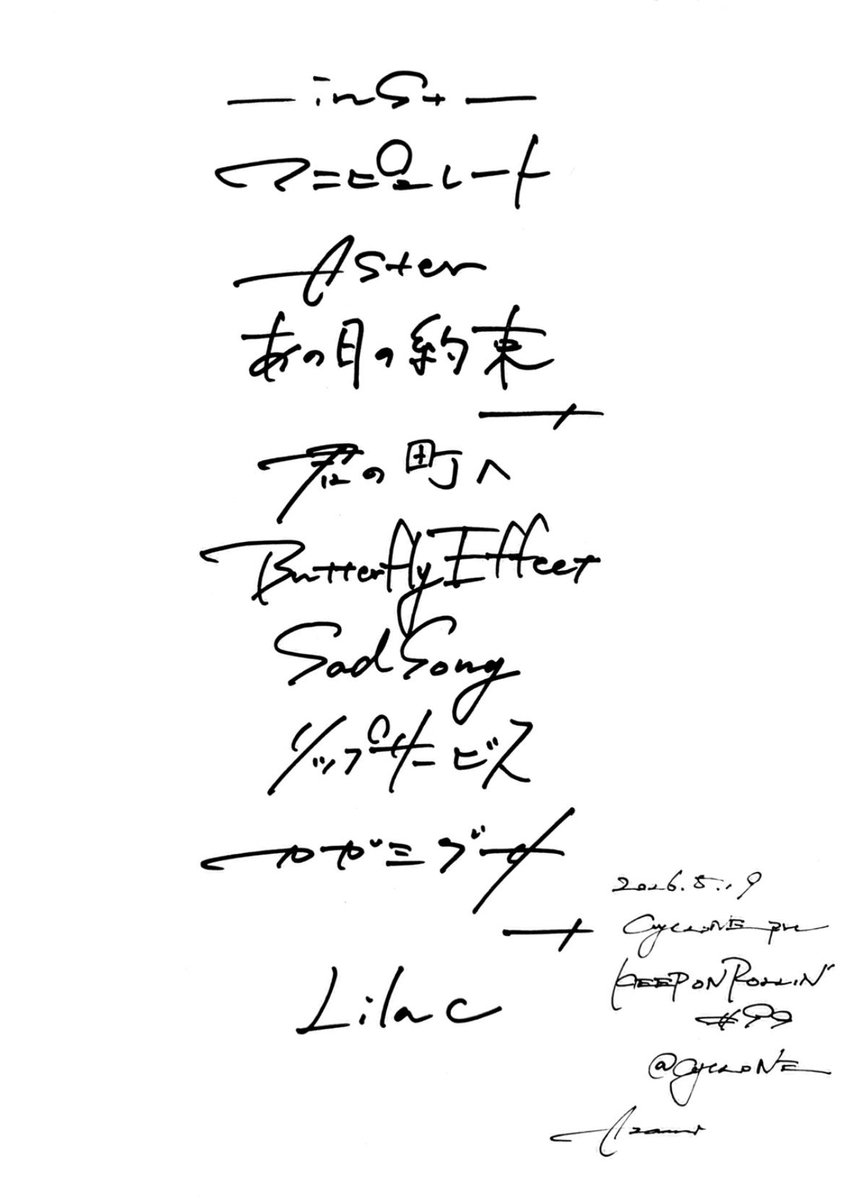 — inSt —
マニピュレート
Aster
あの日の約束
君の町へ
Butterfly Effect
Sad Song
リップサービス
カガミヅ
Lilac
2026.5.19
CycloNE pre
KEEP ON ROLLIN'
#99
@CycloNE
Azami